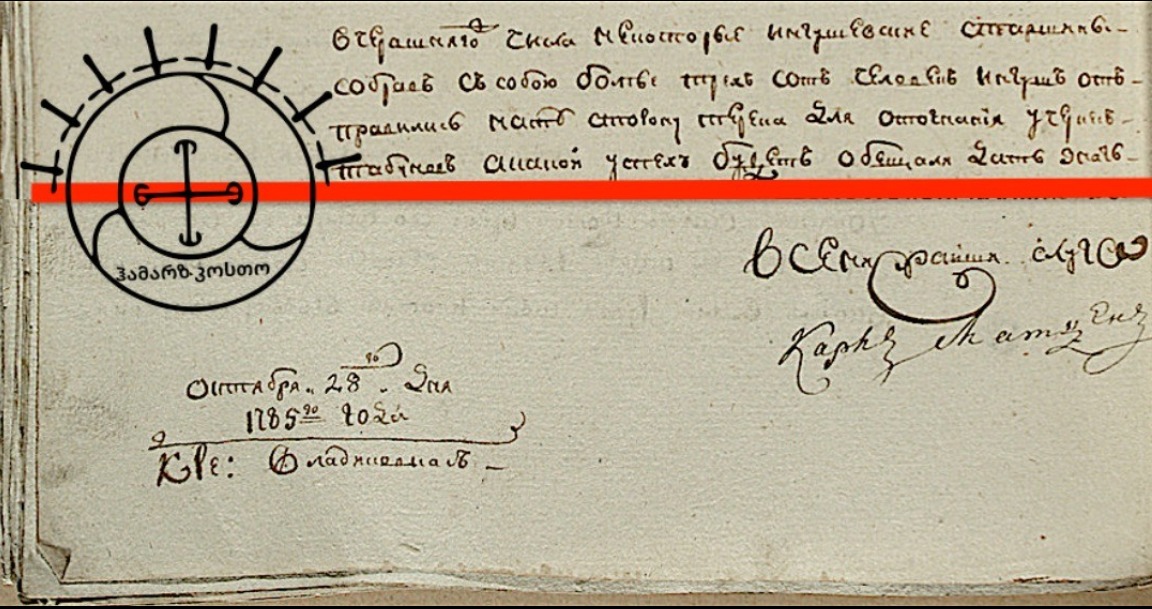 вчерашняго числа некоторые ингушевские старшины
собрав с собою более трех сотъ человекъ ингушъ отъ-
правились на сторону терека для отогнания
табуновъ а какой успехъ будетъ обещали дать знать
всенижайший слуга
Карлъ Матценъ
Октября. 28го. Дня
1785го года
Кре: Владикавказъ
ჰამარზ-კოსთო